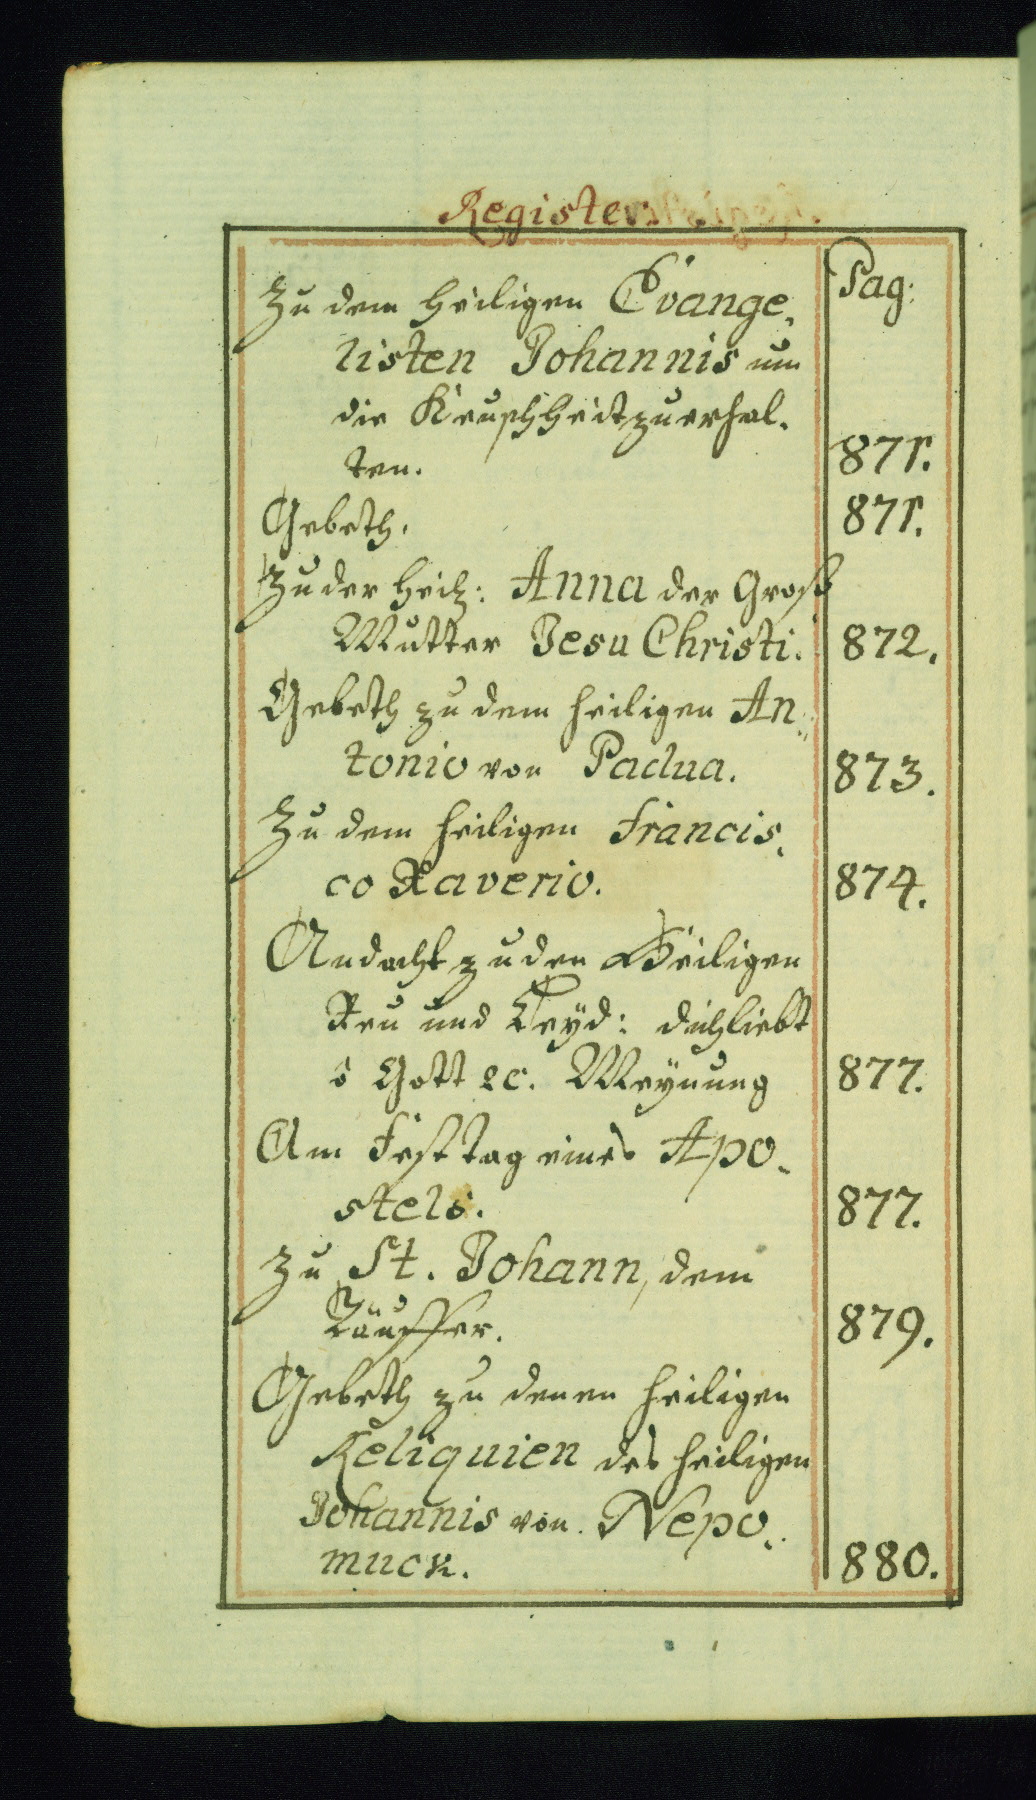 Register.
Pag:
Zu dem Heiligen Evange-
listen Johannis um
die Keuschheit zu erhal-
ten. 871.
Gebeth. 871.
Zu der Heil: Anna der Groß
Mutter Jesu Christi. 872.
Gebeth zu dem heiligen An-
tonio von Padua. 873.
Zu dem heiligen Francis-
co Xaverio. 874.
Andacht zu den Heiligen
Reu und Leyd: dich liebt
ô Gott ec. Meynung 877.
Am Fest tag eines Apo-
stels. 877.
Zu St. Johann, dem
Täuffer. 879.
Gebeth zu denen heiligen
Reliquien des heiligen
Johannis von Nepo-
muck. 880.